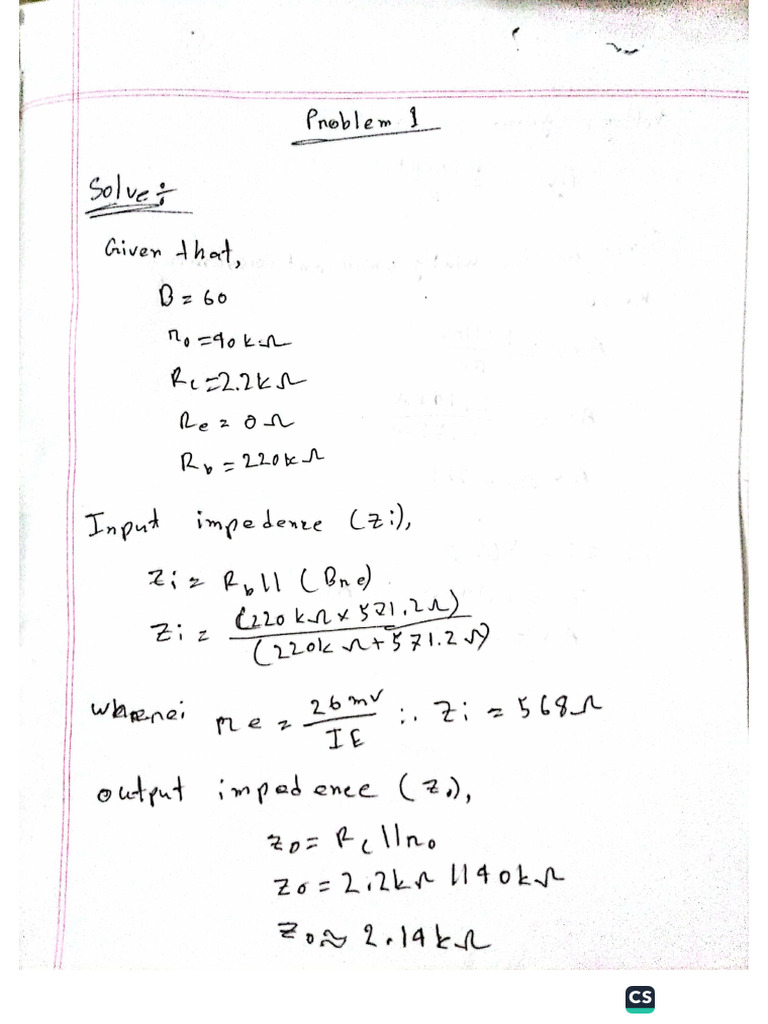 Problem 1
Solve ÷
Given that,
β = 60
r₀ = 40 kΩ
Rc = 2.2 kΩ
Re = 0 Ω
Rb = 220 kΩ
Input impedence (Zi),
Zi = Rb || (βre)
Zi = (220 kΩ x 571.2 Ω) / (220k Ω + 571.2 Ω)
where; re = 26 mv / IE ∴ Zi = 568 Ω
output impedence (Z₀),
Z₀ = Rc || r₀
Z₀ = 2.2 kΩ || 40 kΩ
Z₀ ≈ 2.14 kΩ
CS